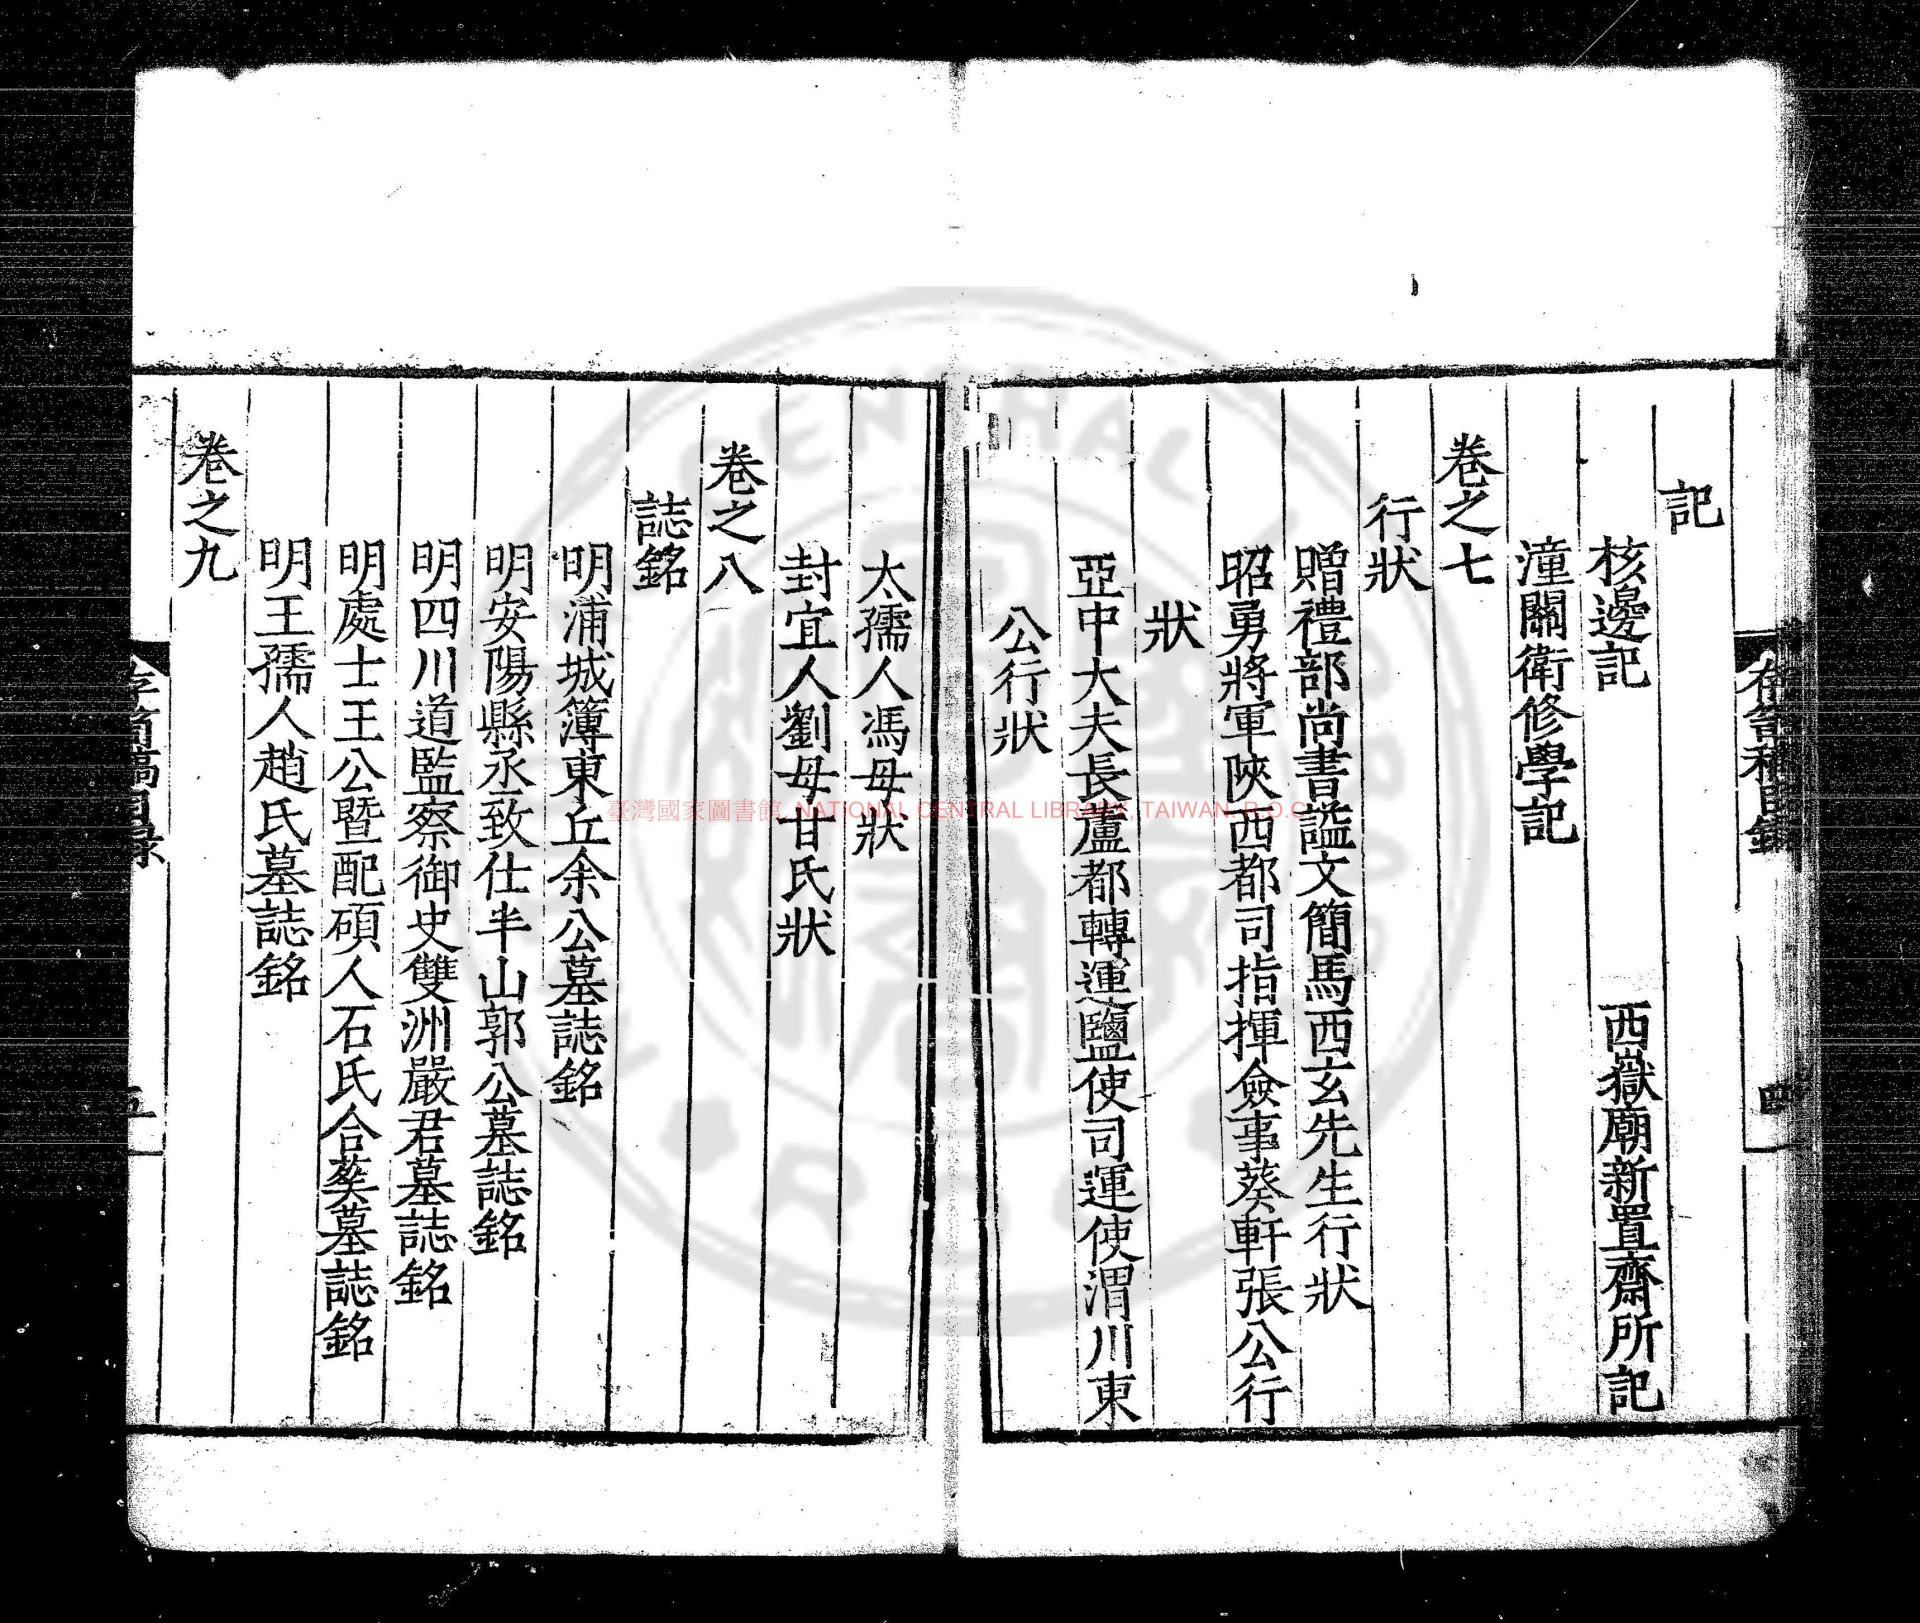 記
核邊記　西嶽廟新置齋所記
潼關衛修學記
卷之七
行狀
贈禮部尚書謚文簡馬西玄先生行狀
昭勇將軍陝西都司指揮僉事葵軒張公行
狀
亞中大夫長蘆都轉運鹽使司運使渭川東
公行狀
太孺人馮母狀
封宜人劉母甘氏狀
卷之八
誌銘
明浦城簿東丘余公墓誌銘
明安陽縣丞致仕半山郭公墓誌銘
明四川道監察御史雙洲嚴君墓誌銘
明處士王公暨配碩人石氏合葬墓誌銘
明王孺人趙氏墓誌銘
卷之九
存笥稿目錄
四
五
臺灣國家圖書館, NATIONAL CENTRAL LIBRARY, TAIWAN, R.O.C